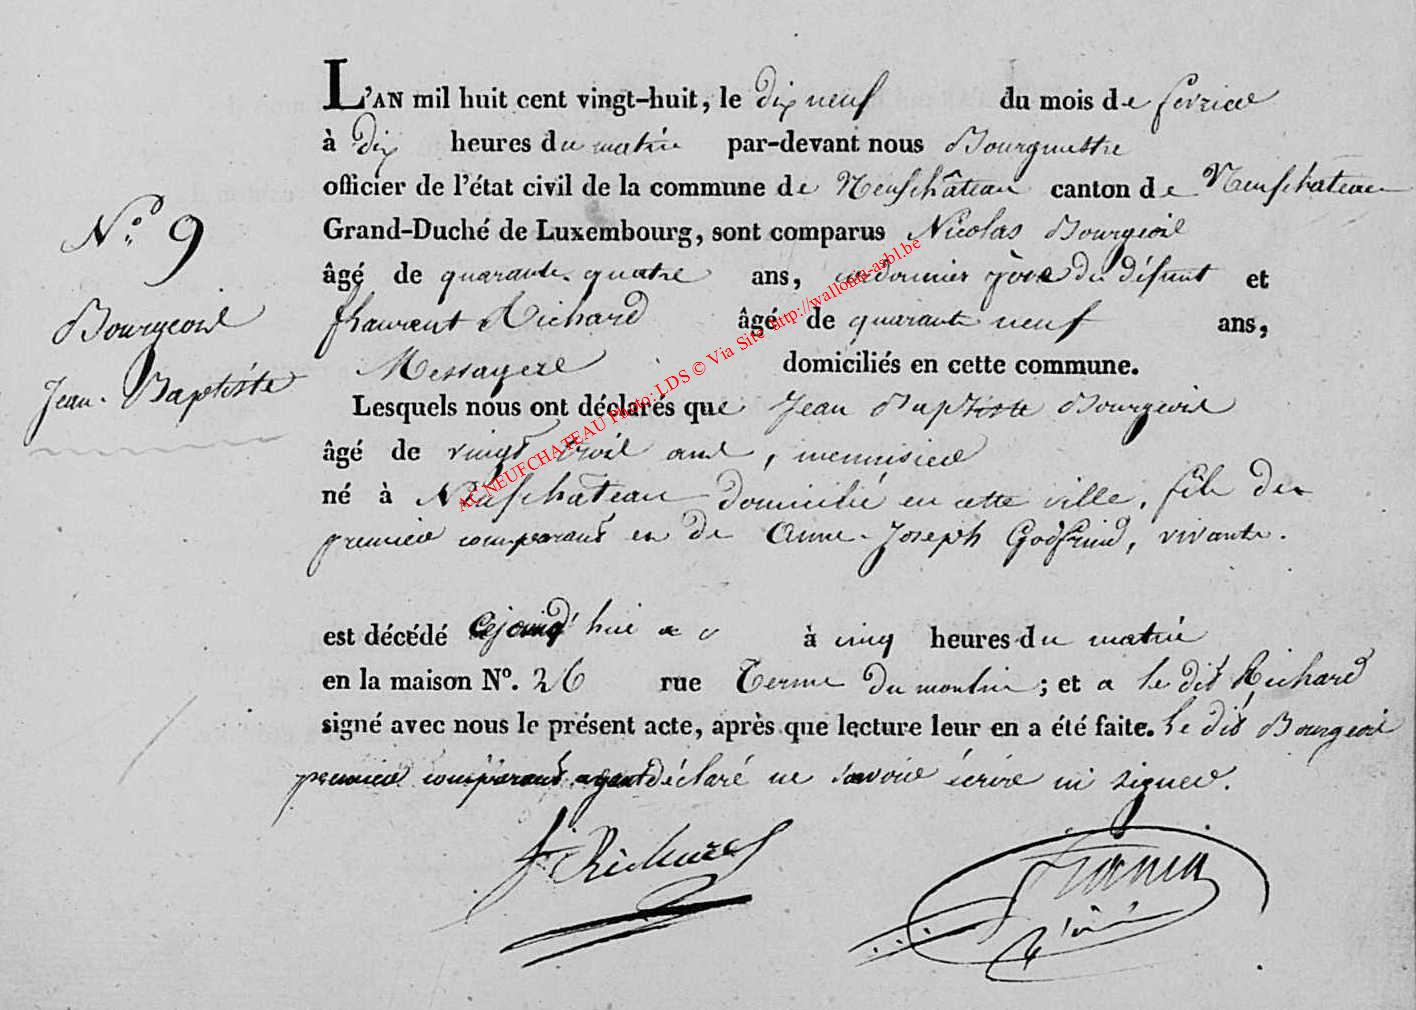 L'AN mil huit cent vingt-huit, le dix neuf du mois de fevrier
à dix heures du matin par-devant nous Bourgmestre
officier de l'état civil de la commune de Neufchâteau canton de Neufchateau
Grand-Duché de Luxembourg, sont comparus Nicolas Bourgeois
âgé de quarante quatre ans, cordonnier père du défunt et
Laurent Richard âgé de quarante neuf ans,
Messager domiciliés en cette commune.
Lesquels nous ont déclarés que Jean Baptiste Bourgeois
âgé de vingt trois ans, menuisier
né à Neufchateau domicilié en cette ville, fils du
premier comparant et de Anne-Joseph Godfrind, vivante.
est décédé cejourd'hui à cinq heures du matin
en la maison N°. 26 rue Terme du moulin; et a le dit Richard
signé avec nous le présent acte, après que lecture leur en a été faite. le dit Bourgeois
premier comparant ayant déclaré ne savoir écrire ni signer.
N° 9
Bourgeois
Jean-Baptiste
Richard
AC NEUFCHATEAU Photo: LDS © Via Site http://wallonia-asbl.be